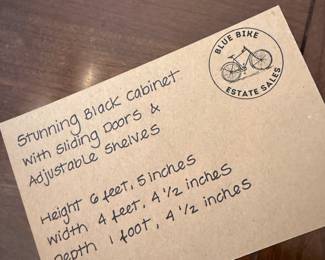 BLUE BIKE
ESTATE SALES
Stunning Black Cabinet
with Sliding Doors &
Adjustable Shelves
Height 6 feet, 5 inches
Width 4 feet, 4 1/2 inches
Depth 1 foot, 4 1/2 inches